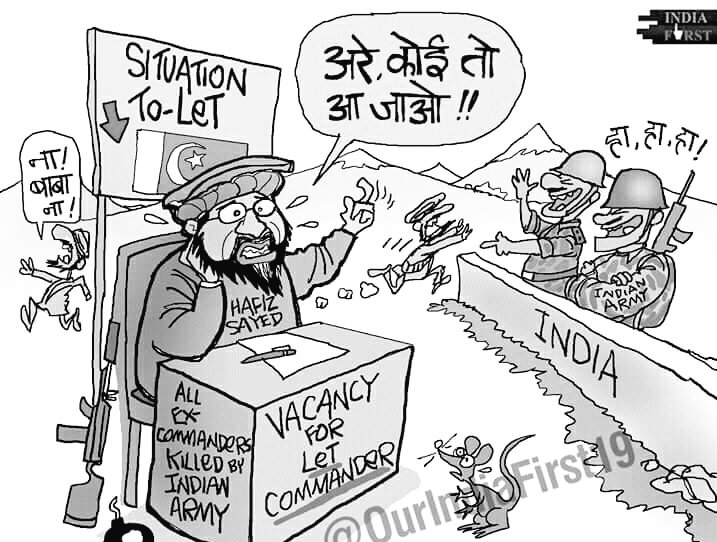 INDIA
F RST
SITUATION
TO-LeT
अरे, कोई तो
आ जाओ !!
ना!
बाबा
ना!
हा, हा, हा!
HAFIZ
SAYED
INDIAN
ARMY
INDIA
ALL
EX-
COMMANDERS
KILLED BY
INDIAN
ARMY
VACANCY
FOR
LeT
COMMANDER
@OurIndiaFirst19